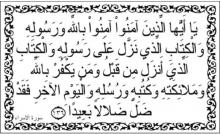 يَا أَيُّهَا الَّذِينَ آمَنُوا آمِنُوا بِاللَّهِ وَرَسُولِهِ
وَالْكِتَابِ الَّذِي نَزَّلَ عَلَى رَسُولِهِ وَالْكِتَابِ
الَّذِي أَنْزَلَ مِنْ قَبْلُ وَمَنْ يَكْفُرْ بِاللَّهِ
وَمَلَائِكَتِهِ وَكُتُبِهِ وَرُسُلِهِ وَالْيَوْمِ الْآخِرِ فَقَدْ
ضَلَّ ضَلَالًا بَعِيدًا ١٣٦